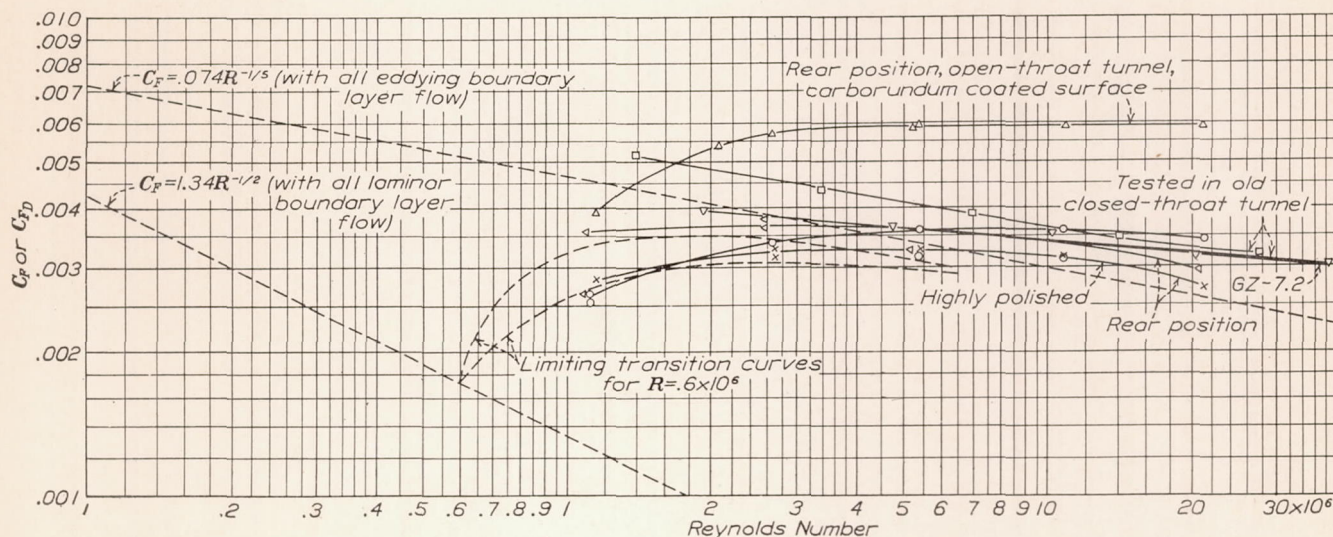 .010
.009
.008
.007
.006
.005
.004
.003
.002
.001
C_F or C_{F_D}
C_F=.074R^{-1/5} (with all eddying boundary
layer flow)
C_F=1.34R^{-1/2} (with all laminar
boundary layer
flow)
Rear position, open-throat tunnel,
carborundum coated surface
Tested in old
closed-throat tunnel
GZ-7.2
Highly polished
Rear position
Limiting transition curves
for R=.6x10⁶
.1 .2 .3 .4 .5 .6 .7 .8 .9 1 2 3 4 5 6 7 8 9 10 20 30x10⁶
Reynolds Number